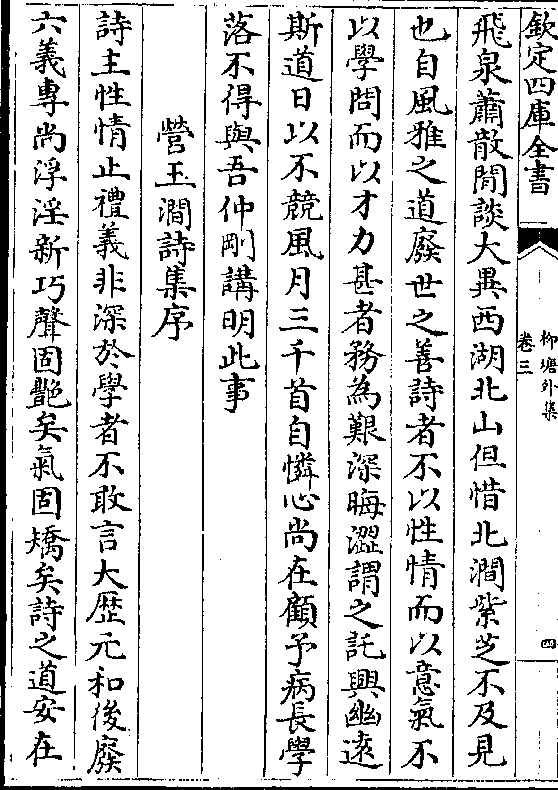 欽定四庫全書
柳塘外集
卷三
四
飛泉蕭散閒談大異西湖北山但惜北澗紫芝不及見
也自風雅之道廢世之善詩者不以性情而以意氣不
以學問而以才力甚者務為艱深晦澀謂之託興幽遠
斯道日以不競風月三千首自憐心尚在顧予病長學
落不得與吾仲剛講明此事
營玉澗詩集序
詩主性情止禮義非深於學者不敢言大歴元和後廢
六義專尚浮淫新巧聲固艶矣氣固矯矣詩之道安在